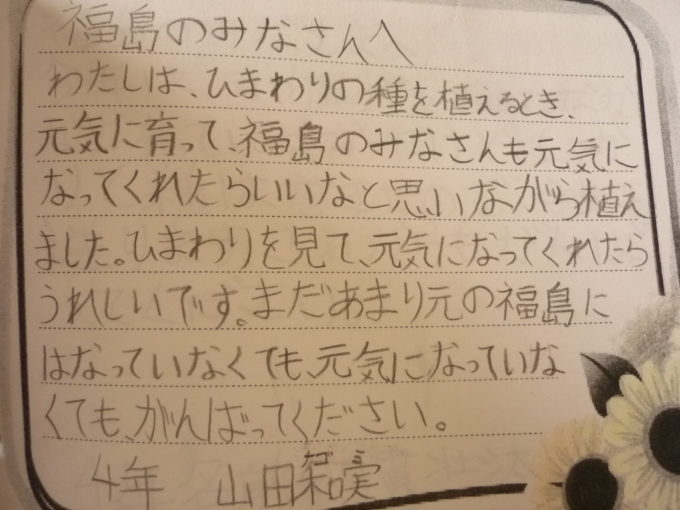 福島のみなさんへ
わたしは、ひまわりの種を植えるとき、
元気に育って、福島のみなさんも元気に
なってくれたらいいなと思いながら植え
ました。ひまわりを見て、元気になってくれたら
うれしいです。まだあまり元の福島に
はなっていなくても、元気になっていな
くても、がんばってください。
4年 山田和実
ナゴミ